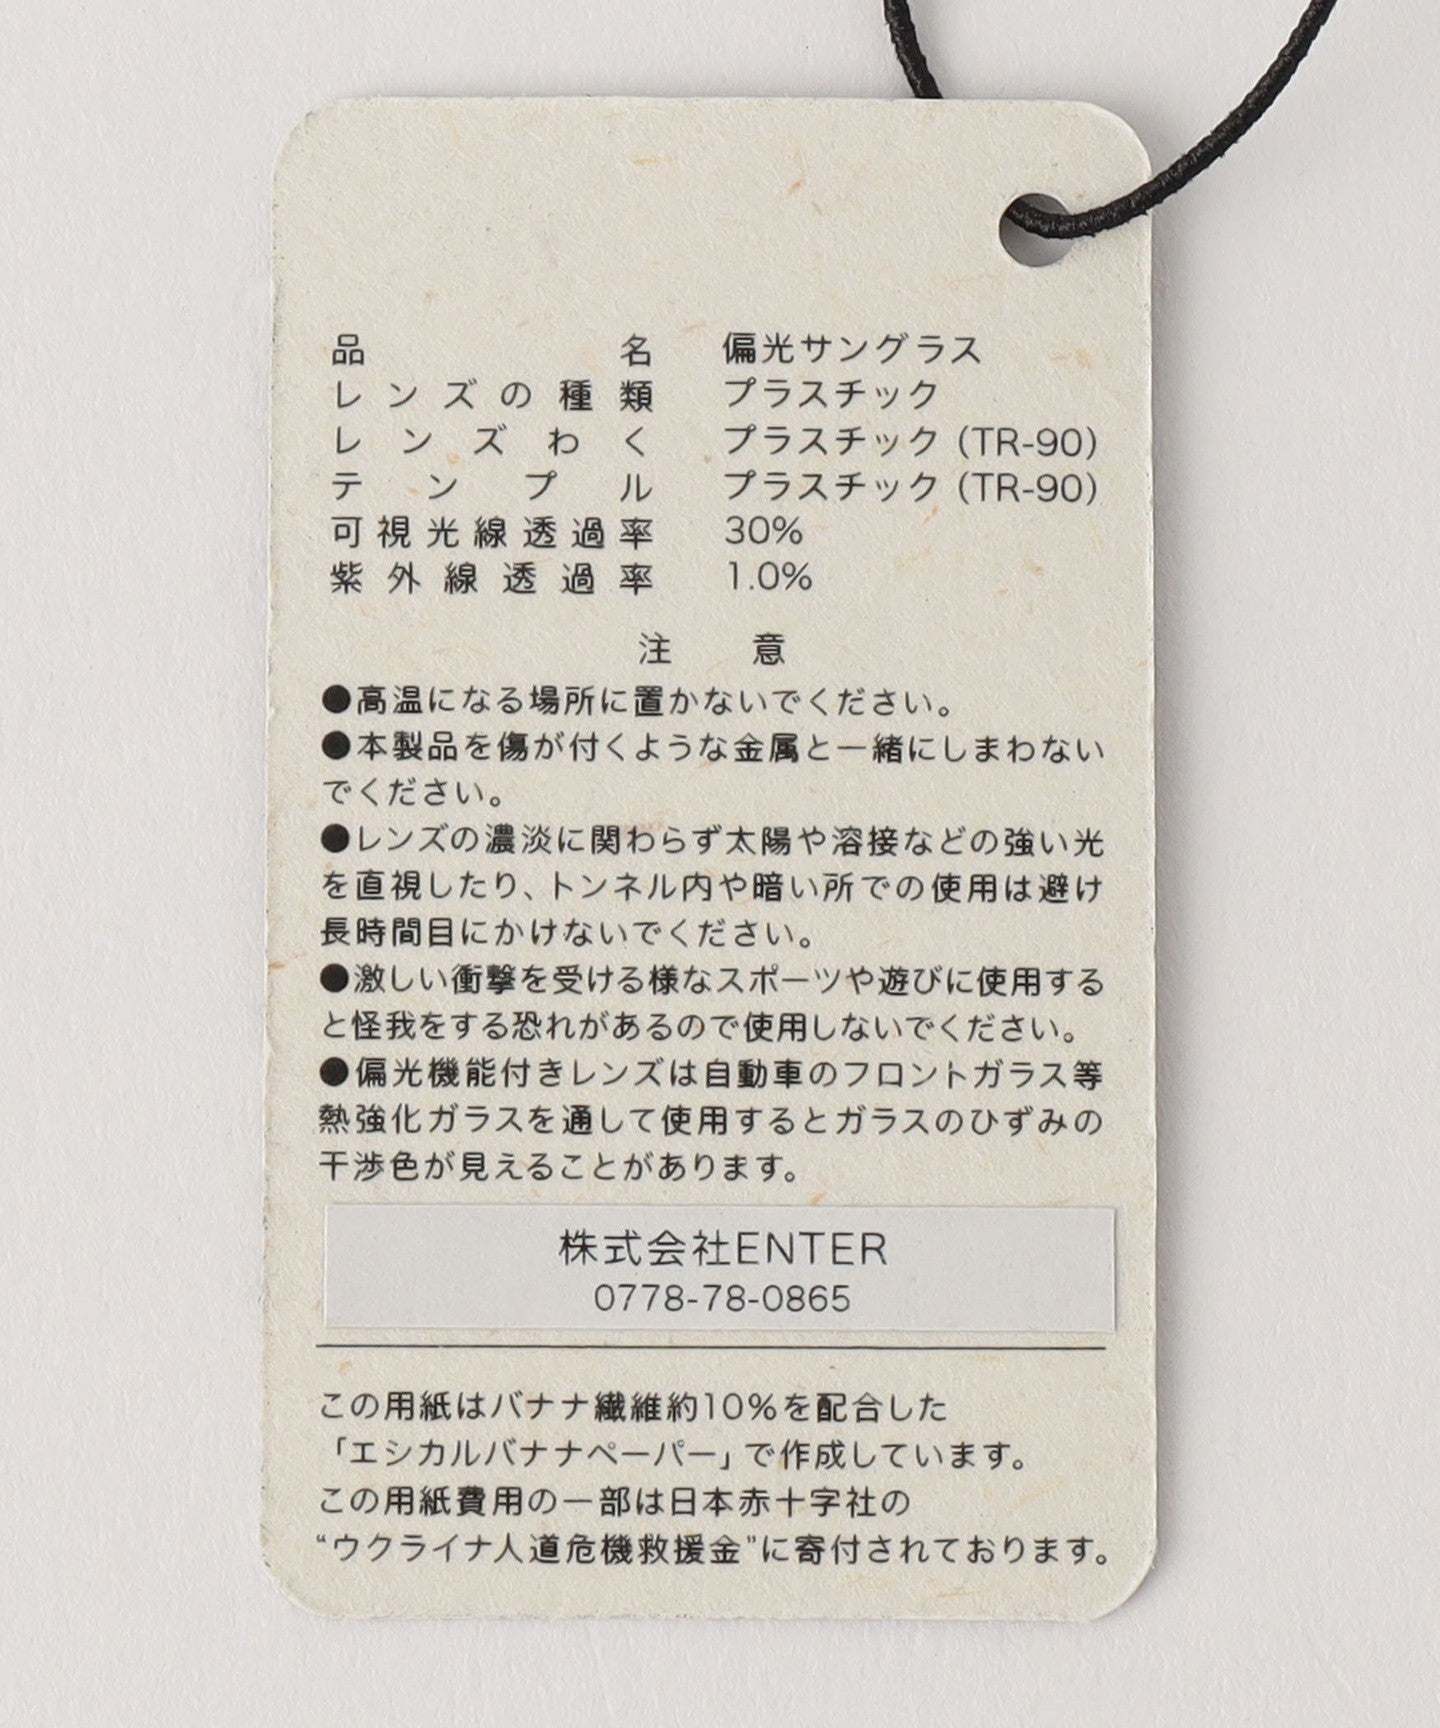 品名 偏光サングラス
レンズの種類 プラスチック
レンズわく プラスチック(TR-90)
テンプル プラスチック(TR-90)
可視光線透過率 30%
紫外線透過率 1.0%
注意
●高温になる場所に置かないでください。
●本製品を傷が付くような金属と一緒にしまわない
でください。
●レンズの濃淡に関わらず太陽や溶接などの強い光
を直視したり、トンネル内や暗い所での使用は避け
長時間目にかけないでください。
●激しい衝撃を受ける様なスポーツや遊びに使用する
と怪我をする恐れがあるので使用しないでください。
●偏光機能付きレンズは自動車のフロントガラス等
熱強化ガラスを通して使用するとガラスのひずみの
干渉色が見えることがあります。
株式会社ENTER
0778-78-0865
この用紙はバナナ繊維約10%を配合した
「エシカルバナナペーパー」で作成しています。
この用紙費用の一部は日本赤十字社の
“ウクライナ人道危機救援金”に寄付されております。